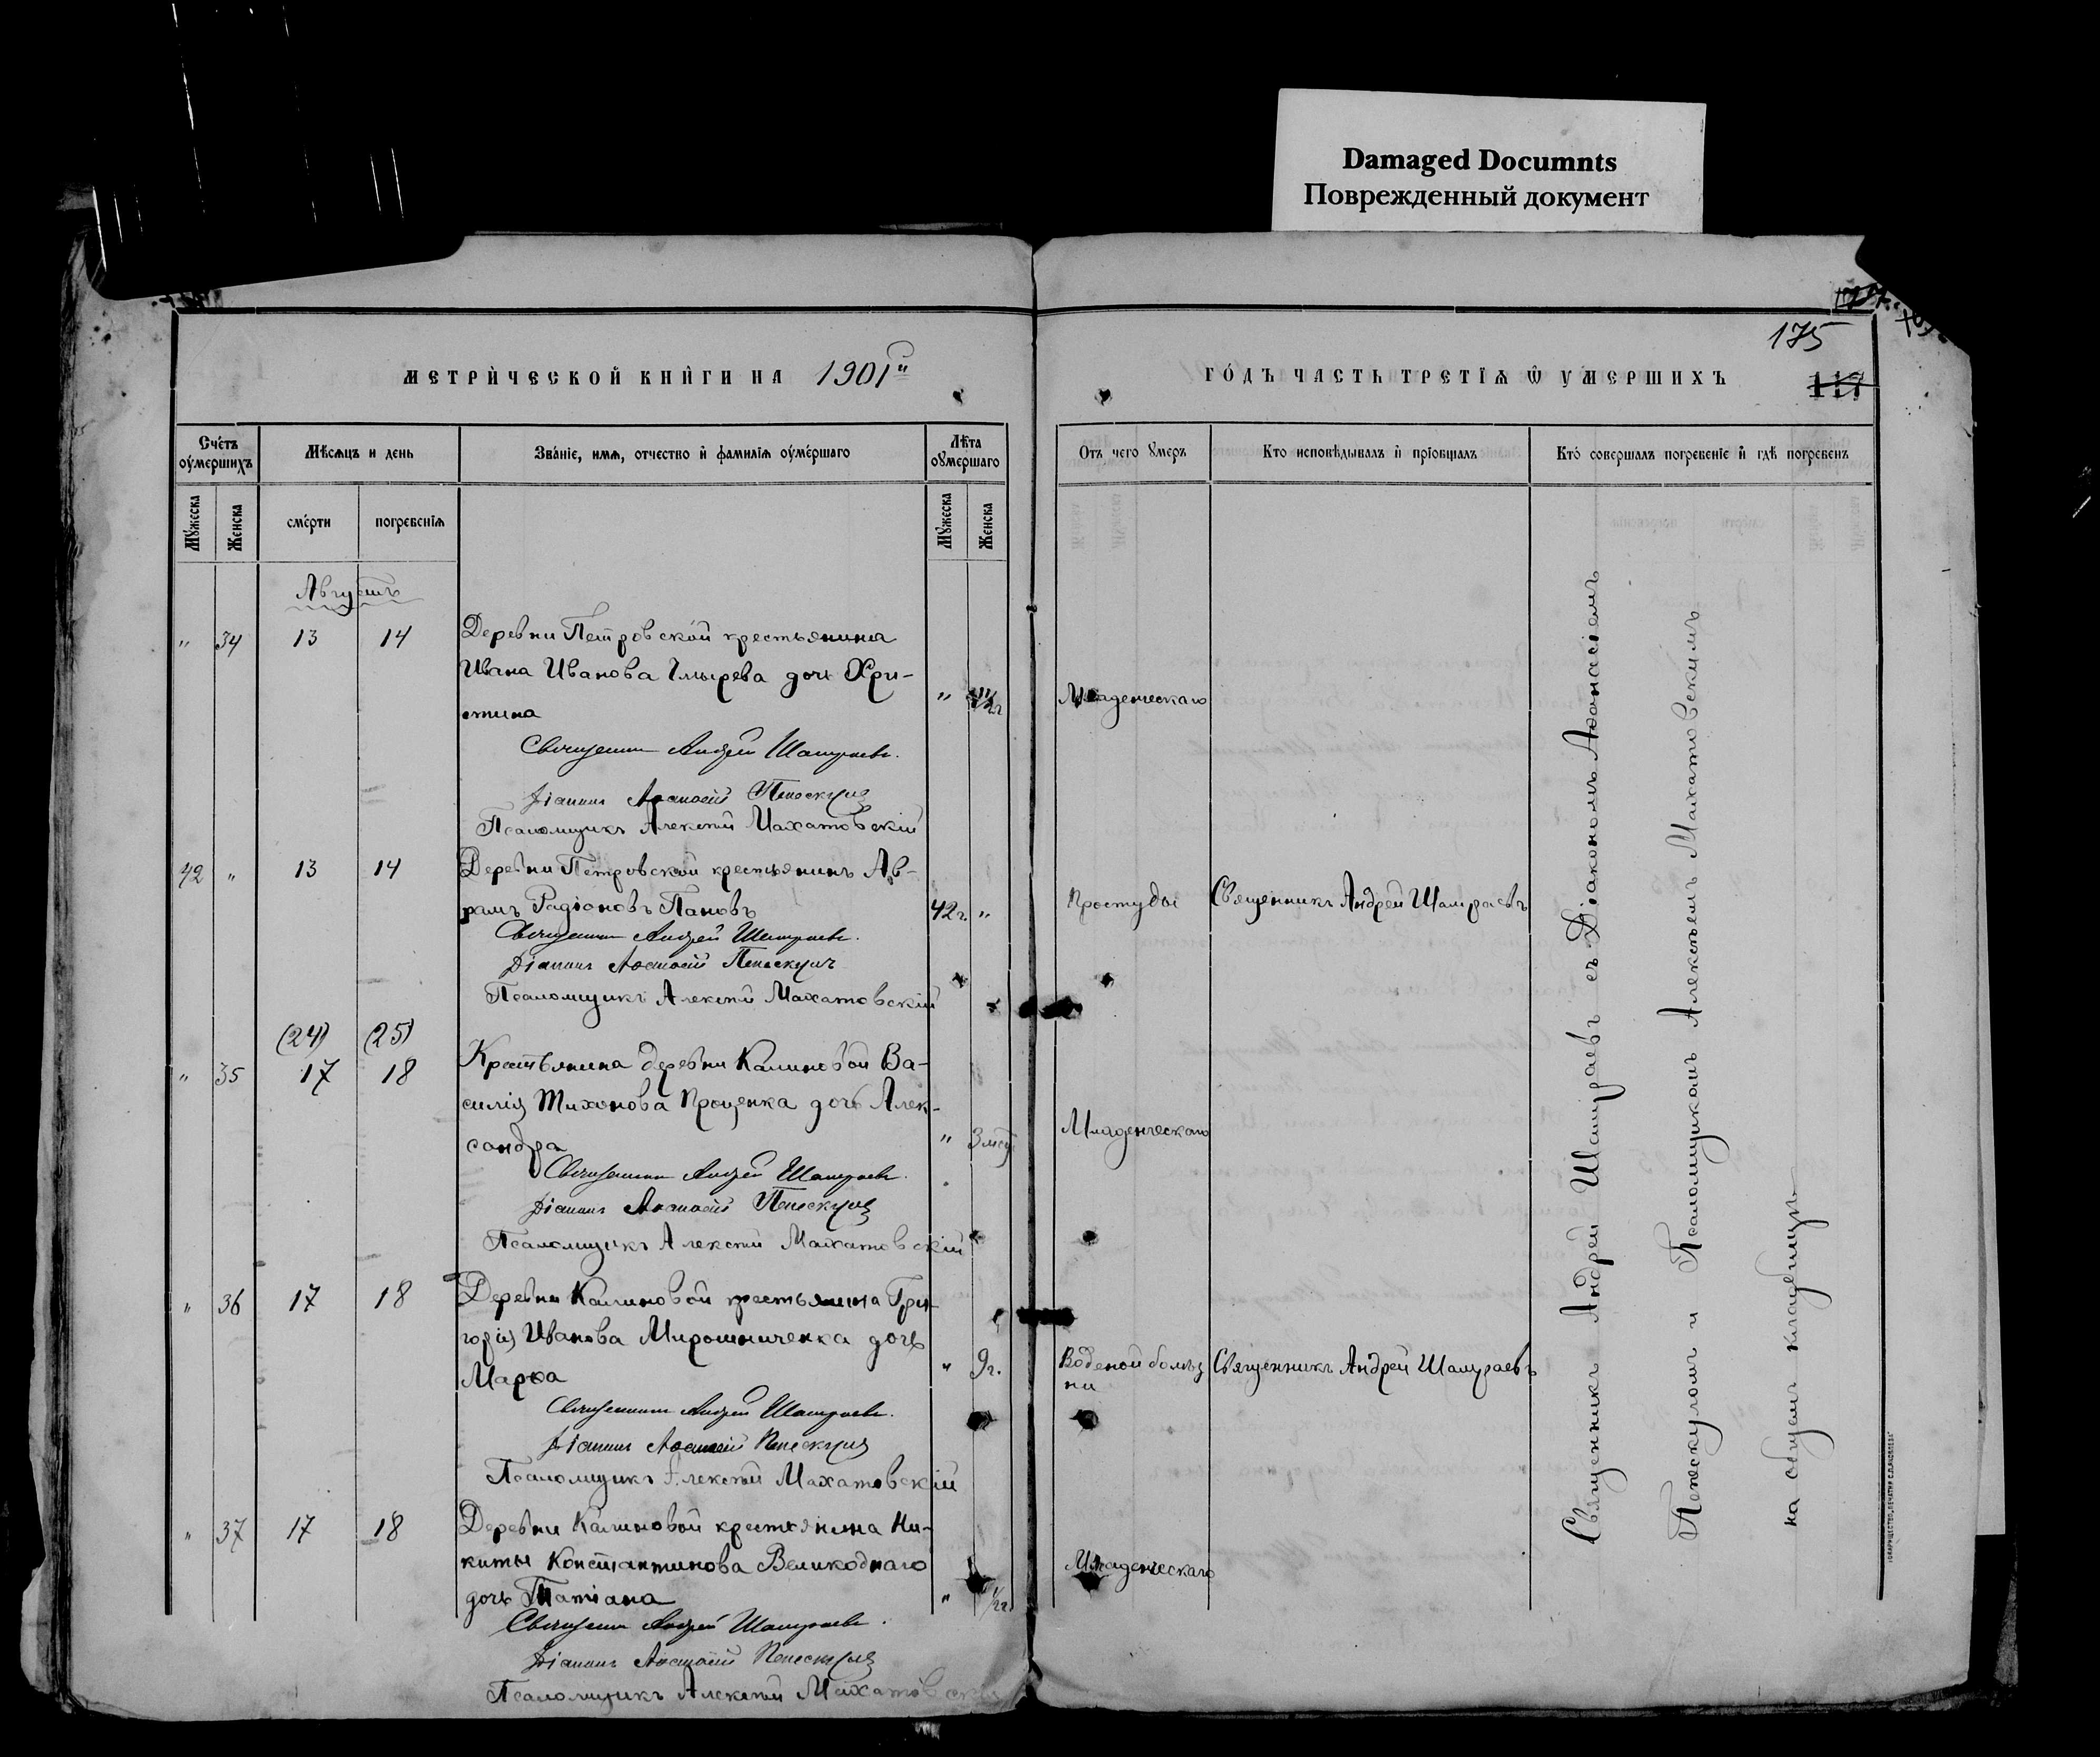 Damaged Documnts
Поврежденный документ
175
117
МЕТРИЧЕСКОЙ КНИГИ НА 1901й
ГОДЪ ЧАСТЬ ТРЕТІѦ Ѿ УМЕРШИХЪ
Счетъ оумершихъ
Мѣсяцъ и день
Званіе, имя, отчество и фамилія оумершаго
Лѣта оумершаго
Отъ чего умеръ
Кто исповѣдывалъ и пріобщалъ
Кто совершалъ погребеніе и гдѣ погребенъ
Мужеска
Женска
смерти
погребенія
Мужеска
Женска
Августъ
" 34 13 14 Деревни Петровской крестьянина
Ивана Иванова Гмырева дочь Хри-
стина " Младенческаго
Священникъ Андрей Шашураевъ.
Діаконъ Аѳанасій Пенескулъ
Псаломщикъ Алексѣй Махатовскій
42 " 13 14 Деревни Петровской крестьянинъ Ав-
рамъ Радіоновъ Пановъ 42 г. " Простуды Священникъ Андрей Шашураевъ
Священникъ Андрей Шашураевъ.
Діаконъ Аѳанасій Пенескулъ
Псаломщикъ Алексѣй Махатовскій
(24) (25)
" 35 17 18 Крестьянина деревни Калиновой Ва-
силія Тихонова Проценка дочь Алек-
сандра " 3 мсц Младенческаго
Священникъ Андрей Шашураевъ.
Діаконъ Аѳанасій Пенескулъ
Псаломщикъ Алексѣй Махатовскій
" 36 17 18 Деревни Калиновой крестьянина Гри-
горія Иванова Мирошниченка дочь
Марѳа " 9 г. Водяной болѣз
ни Священникъ Андрей Шашураевъ
Священникъ Андрей Шашураевъ.
Діаконъ Аѳанасій Пенескулъ
Псаломщикъ Алексѣй Махатовскій
" 37 17 18 Деревни Калиновой крестьянина Ни-
киты Константинова Великоднаго
дочь Татіана " 1/2 г. Младенческаго
Священникъ Андрей Шашураевъ.
Діаконъ Аѳанасій Пенескулъ
Псаломщикъ Алексѣй Махатовскій
Священникъ Андрей Шашураевъ съ Діакономъ Аѳанасіемъ
Пенескуломъ и Псаломщикомъ Алексѣемъ Махатовскимъ
на общемъ кладбищѣ